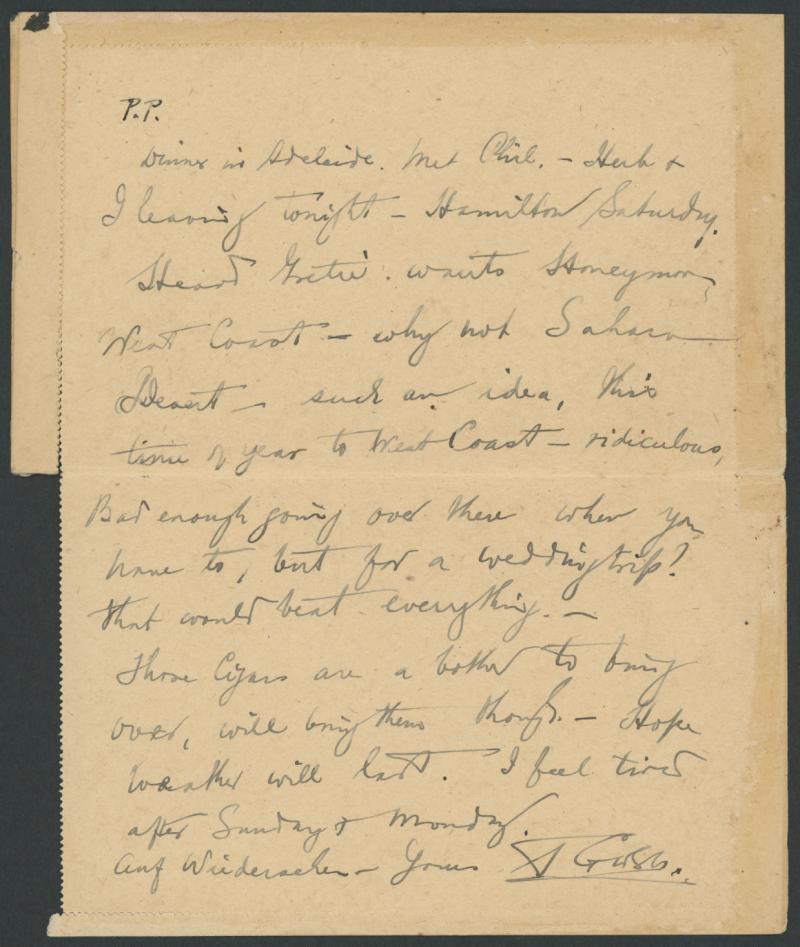 P.P.
Dinner in Adelaide. Met Phil. – Herb &
I leaving tonight – Hamilton Saturday.
Heard Gretie. wants Honeymoon
West Coast – why not Sahara
Desert – such an idea, this
time of year to West Coast – ridiculous,
Bad enough going over there when you
have to, but for a wedding trip!
that would beat everything. –
Those Cigars are a bother to bring
over, will bring them though. – Hope
weather will last. I feel tired
after Sunday & Monday.
Auf Wiedersehen – Yours